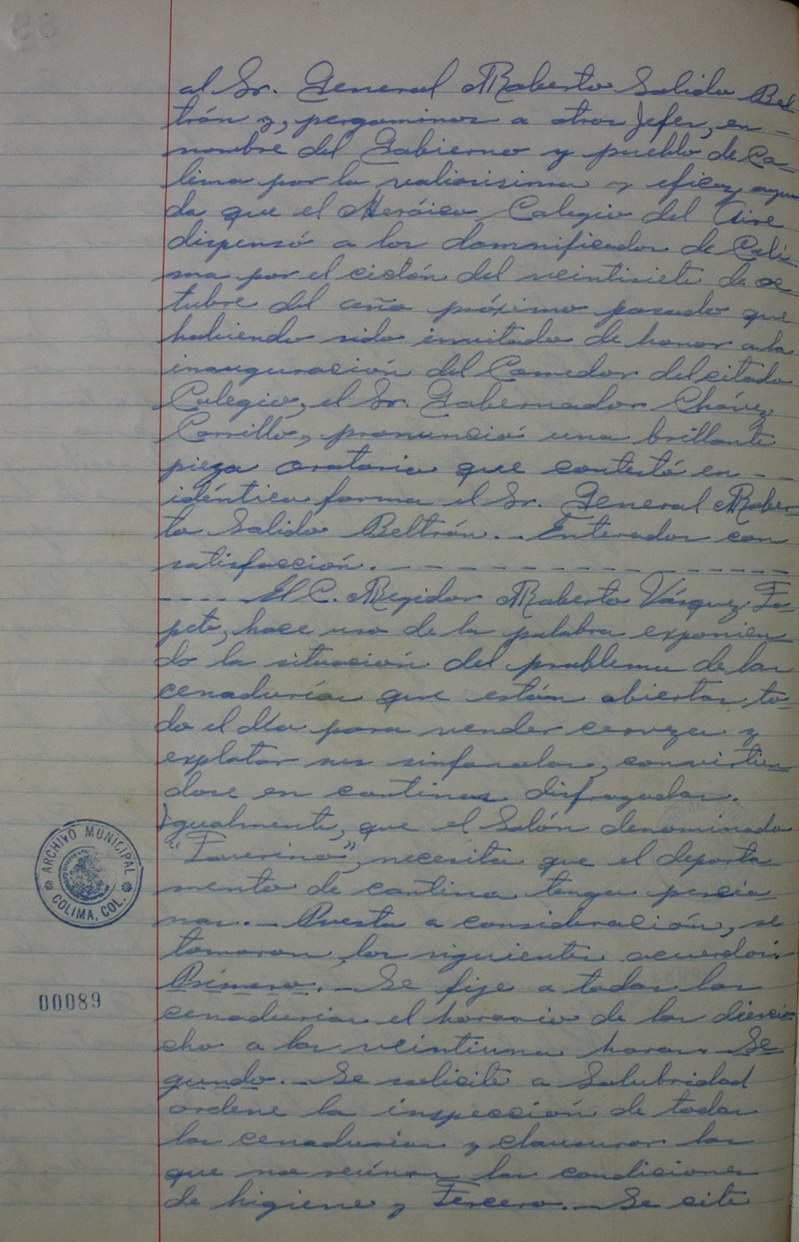 al Sr. General Roberto Salido Bel
trán y, pergaminos a otros Jefes, en -
nombre del Gobierno y pueblo de Co-
lima por la valiosisima y eficaz ayu
da que el Heróico Colegio del Aire
dispensó a los damnificados de Coli-
ma por el ciclón del veintisiete de oc-
tubre del año próximo pasado que
habiendo sido invitado de honor a la
inauguración del Comedor del citado
Colegio, el Sr. Gobernador Chávez
Carrillo, pronunció una brillante
pieza oratoria que contestó en - -
idéntica forma el Sr. General Rober-
to Salido Beltrán.- Enterados con
satisfacción. - - - - - - - - - - - - - -
- - - - El C. Regidor Roberto Vázquez Ta-
pete, hace uso de la palabra exponien
do la situación del problema de las
cenadurías que están abiertas to-
do el día para vender cerveza y
explotar sus sinfonolas, convirtien
dose en cantinas disfrazadas.
Igualmente, que el Salón denominado
necesita que el departa-
mento de cantina tenga persia-
nas.- Puesta a consideración, se
tomaron los siguientes acuerdos:
Primero.- Se fije a todas las
cenadurías el horario de las diecio
cho a las veintiuna horas. Se
gundo.- Se solicite a Salubridad
ordene la inspección de todas
las cenadurías y clausurar las
que no reúnan las condiciones
de higiene y Tercero.- Se cite
ARCHIVO MUNICIPAL
COLIMA, COL.
00089